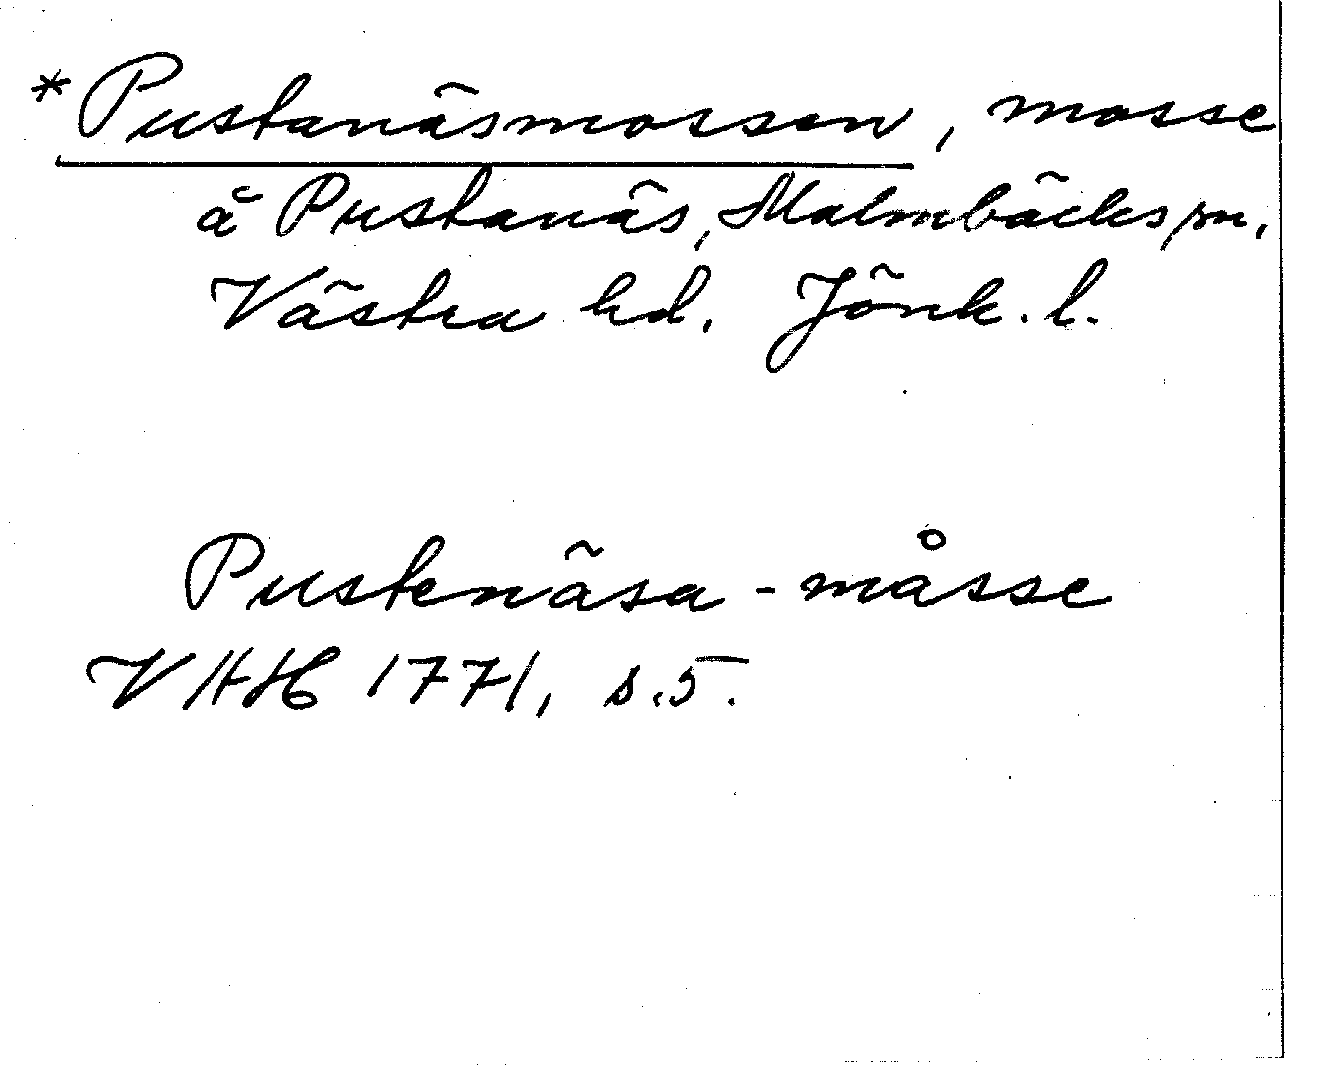 *Pustanäsmossen, mosse
å Pustanäs, Malmbäcks sn,
Västra hd. Jönk. l.
Pustenäsa-måsse
VHH 1771, s.5.